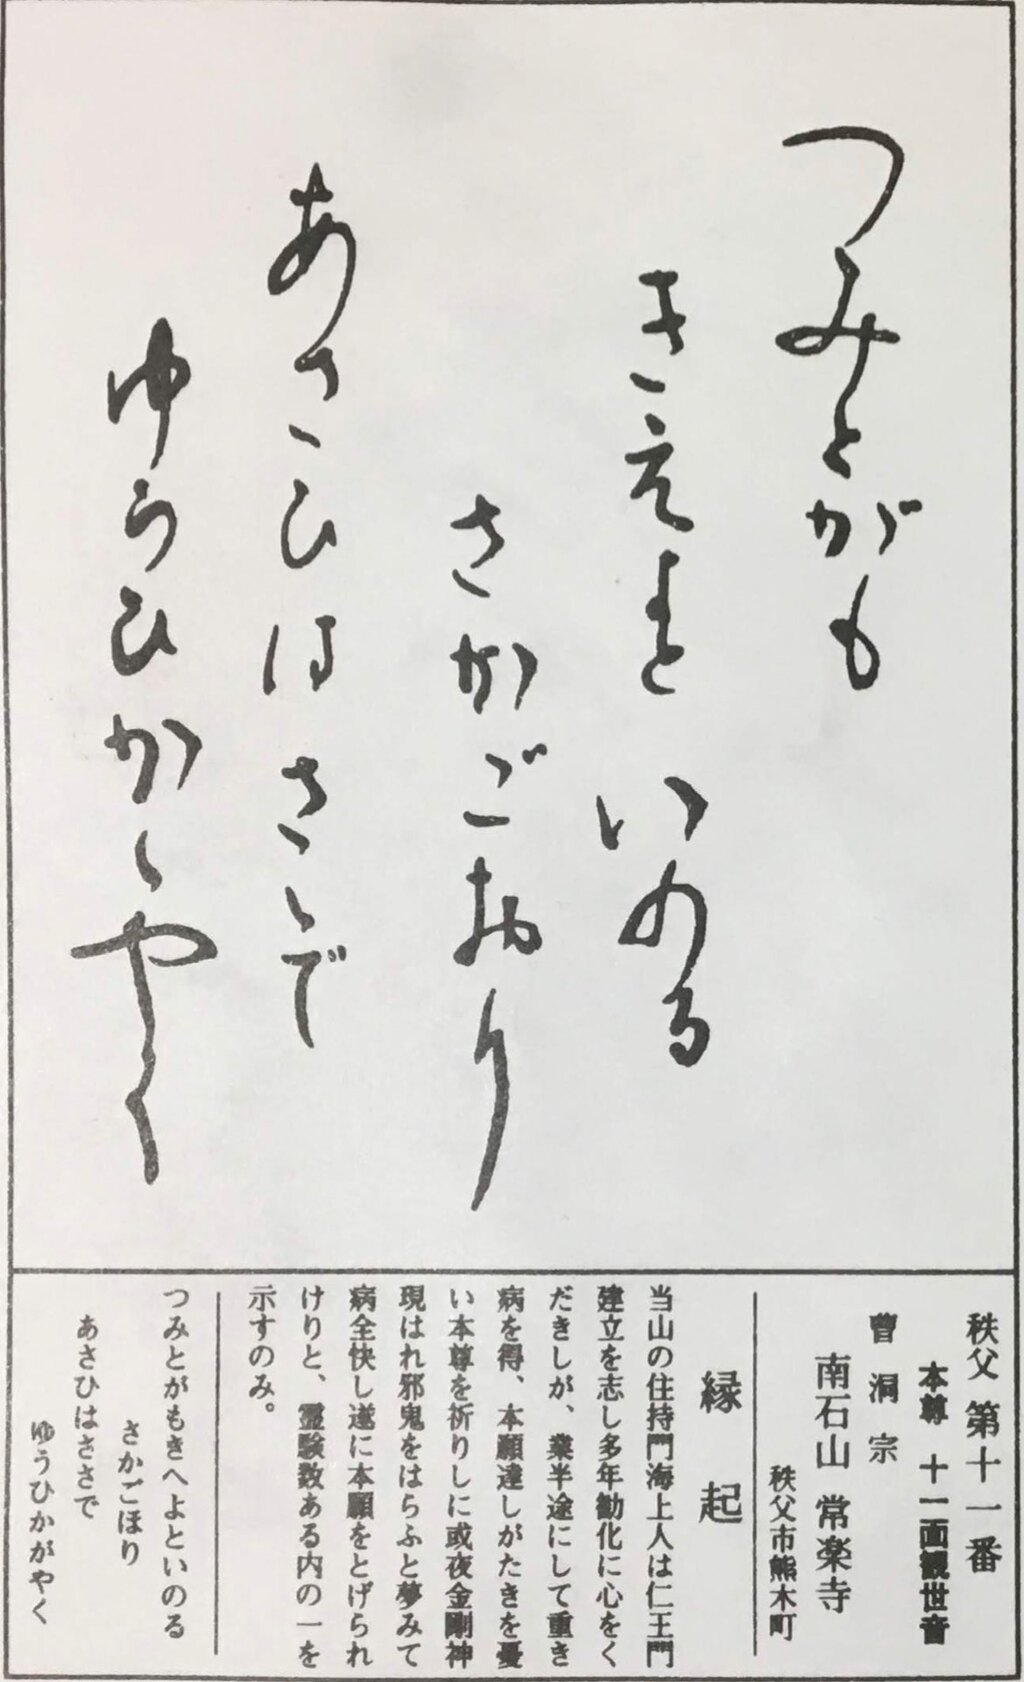 つみとがも
きえよと いのる
さかごおり
あさひは さゝで
ゆうひかゝやく
秩父 第十一番
本尊 十一面観世音
曹洞宗
南石山 常楽寺
秩父市熊木町
縁起
当山の住持門海上人は仁王門
建立を志し多年勧化に心をく
だきしが、業半途にして重き
病を得、本願達しがたきを憂
い本尊を祈りしに或夜金剛神
現はれ邪鬼をはらふと夢みて
病全快し遂に本願をとげられ
けりと、霊験数ある内の一を
示すのみ。
つみとがもきへよといのる
さかごほり
あさひはささで
ゆうひかがやく